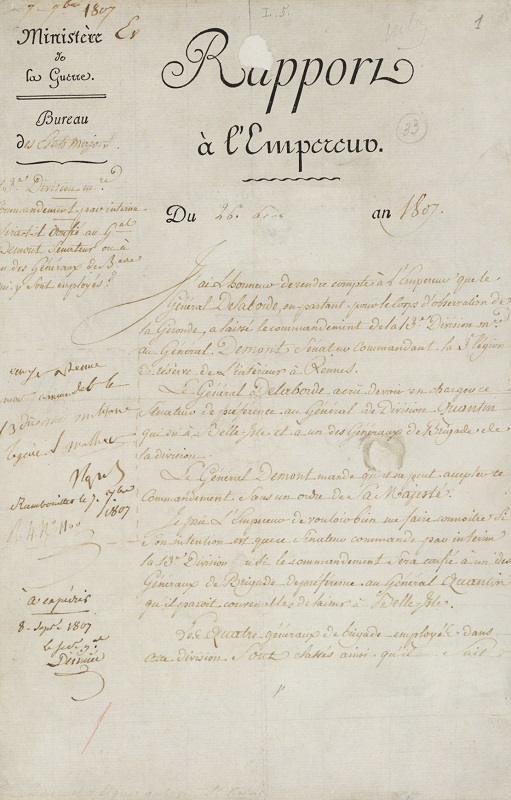 7 7bre 1807
I. 5.
1
Ministère
de
la Guerre.
Bureau
des États major
Rapport
à l'Empereur.
33
Du 26. août an 1807.
La 13e Division mre
Commandement par interim
Serait-il confié au Gal
Demont Sénateur ou à
un des Généraux de Bade
qui y sont employés ?
J'ai l'honneur de rendre compte à l'Empereur que le
Général Delaborde, en partant pour le Corps d'observation de
la Gironde, a laissé le commandement de la 13e Division mre
au Général Demont Sénateur commandant la 3e Légion
de réserve de l'intérieur à Rennes.
Le Général Delaborde a cru devoir en charger ce
Sénateur de préférence au Général de Division Quantin
qui est à Belle-Isle et à un des Généraux de Brigade de
la division.
Le Général Demont mande qu'il ne peut accepter ce
Commandement sans un ordre de Sa Majesté.
Je prie l'Empereur de vouloir bien me faire connoître si
son intention est que ce Sénateur commande par interim
la 13e Division ou si le commandement sera confié à un des
Généraux de Brigade de préférence au Général Quantin
qu'il paroit convenable de laisser à Belle-Isle.
Les Quatre généraux de brigade employés dans
cette division sont classés ainsi qu'il suit
13 division militaire
Rambouillet le 7. 7bre
1807
à expédier
8 Sepbre 1807